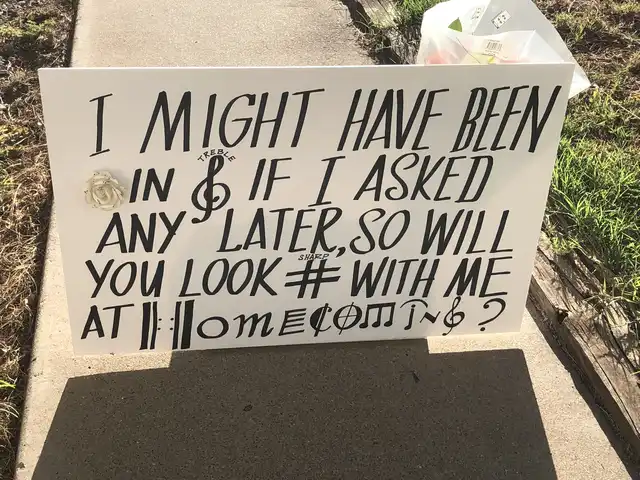 I MIGHT HAVE BEEN
TREBLE
IN 𝄞 IF I ASKED
ANY LATER, SO WILL
SHARP
YOU LOOK # WITH ME
AT HOMECOMING?